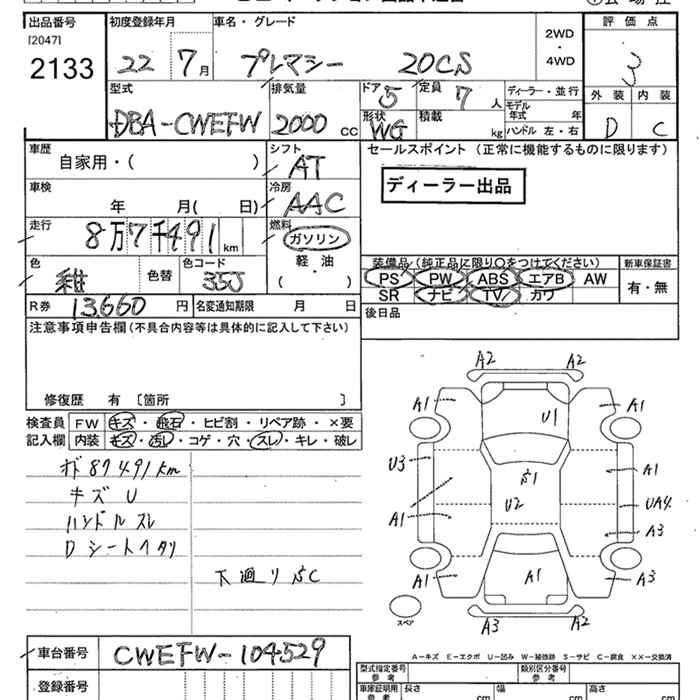 出品番号 初度登録年月 車名・グレード 2WD・4WD 評価点
[2047]
2133 22 7月 プレマシー 20CS 3
型式 排気量 ドア 定員 ディーラー・並行 外装 内装
DBA-CWEFW 2000 cc 5 7人 モデル年式 年 D C
形状 積載
WG kg ハンドル 左・右
車歴 シフト セールスポイント(正常に機能するものに限ります)
自家用・( ) AT
ディーラー出品
車検 冷房
年 月( 日) AAC
走行 燃料
8万7千491km ガソリン
軽・油
( )
色 色替 色コード 35J
装備品(純正品に限り〇をつけてください) 新車保証書
PS PW ABS エアB AW 有・無
SR ナビ TV カワ
R券 13,660円 名変通知期限 月 日 後日品
注意事項申告欄(不具合内容等は具体的に記入して下さい)
修復歴 有 〔箇所 〕
検査員 FW キズ・飛石・ヒビ割・リペア跡・×要
記入欄 内装 キズ・汚レ・コゲ・穴・スレ・キレ・破レ
87491km
キズ U
ハンドルスレ
Dシートヘタリ
下廻り
A2 A2
A1 U1 A1
U3 A1
U2 UA4
A1 A3
A1 A1 A3
A3 A2
スペア
A-キズ E-エクボ U-凹み W-補修跡 S-サビ C-腐食 ××-交換済
車台番号 CWEFW-104529
登録番号
型式指定番号 参考 類別区分番号 参考
車庫証明用 参考 長さ cm 幅 cm 高さ cm